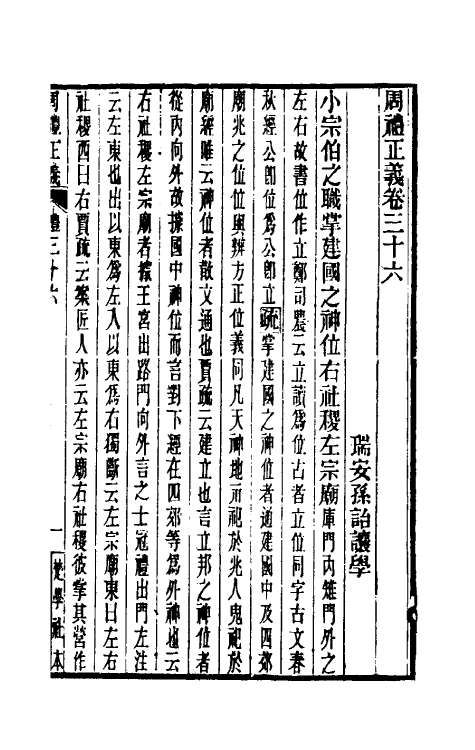 周禮正義卷三十六
瑞安孫詒讓學
小宗伯之職掌建國之神位右社稷左宗廟庫門內雉門外之
左右故書位作立鄭司農云立讀爲位古者立位同字古文春
秋經公卽位爲公卽立疏掌建國之神位者通建國中及四郊
廟兆之位位與辨方正位義同凡天神地示祀於兆人鬼祀於
廟經唯云神位者散文通也賈疏云建立也言立邦之神位者
從內向外故據國中神位而言對下經在四郊等爲外神也云
右社稷左宗廟者據王宮出路門向外言之士冠禮出門左注
云左東也出以東爲左入以東爲右獨斷云左宗廟東曰左右
社稷西曰右賈疏云案匠人亦云左宗廟右社稷彼掌其營作
周禮正義 禮三十六 一 楚學社本